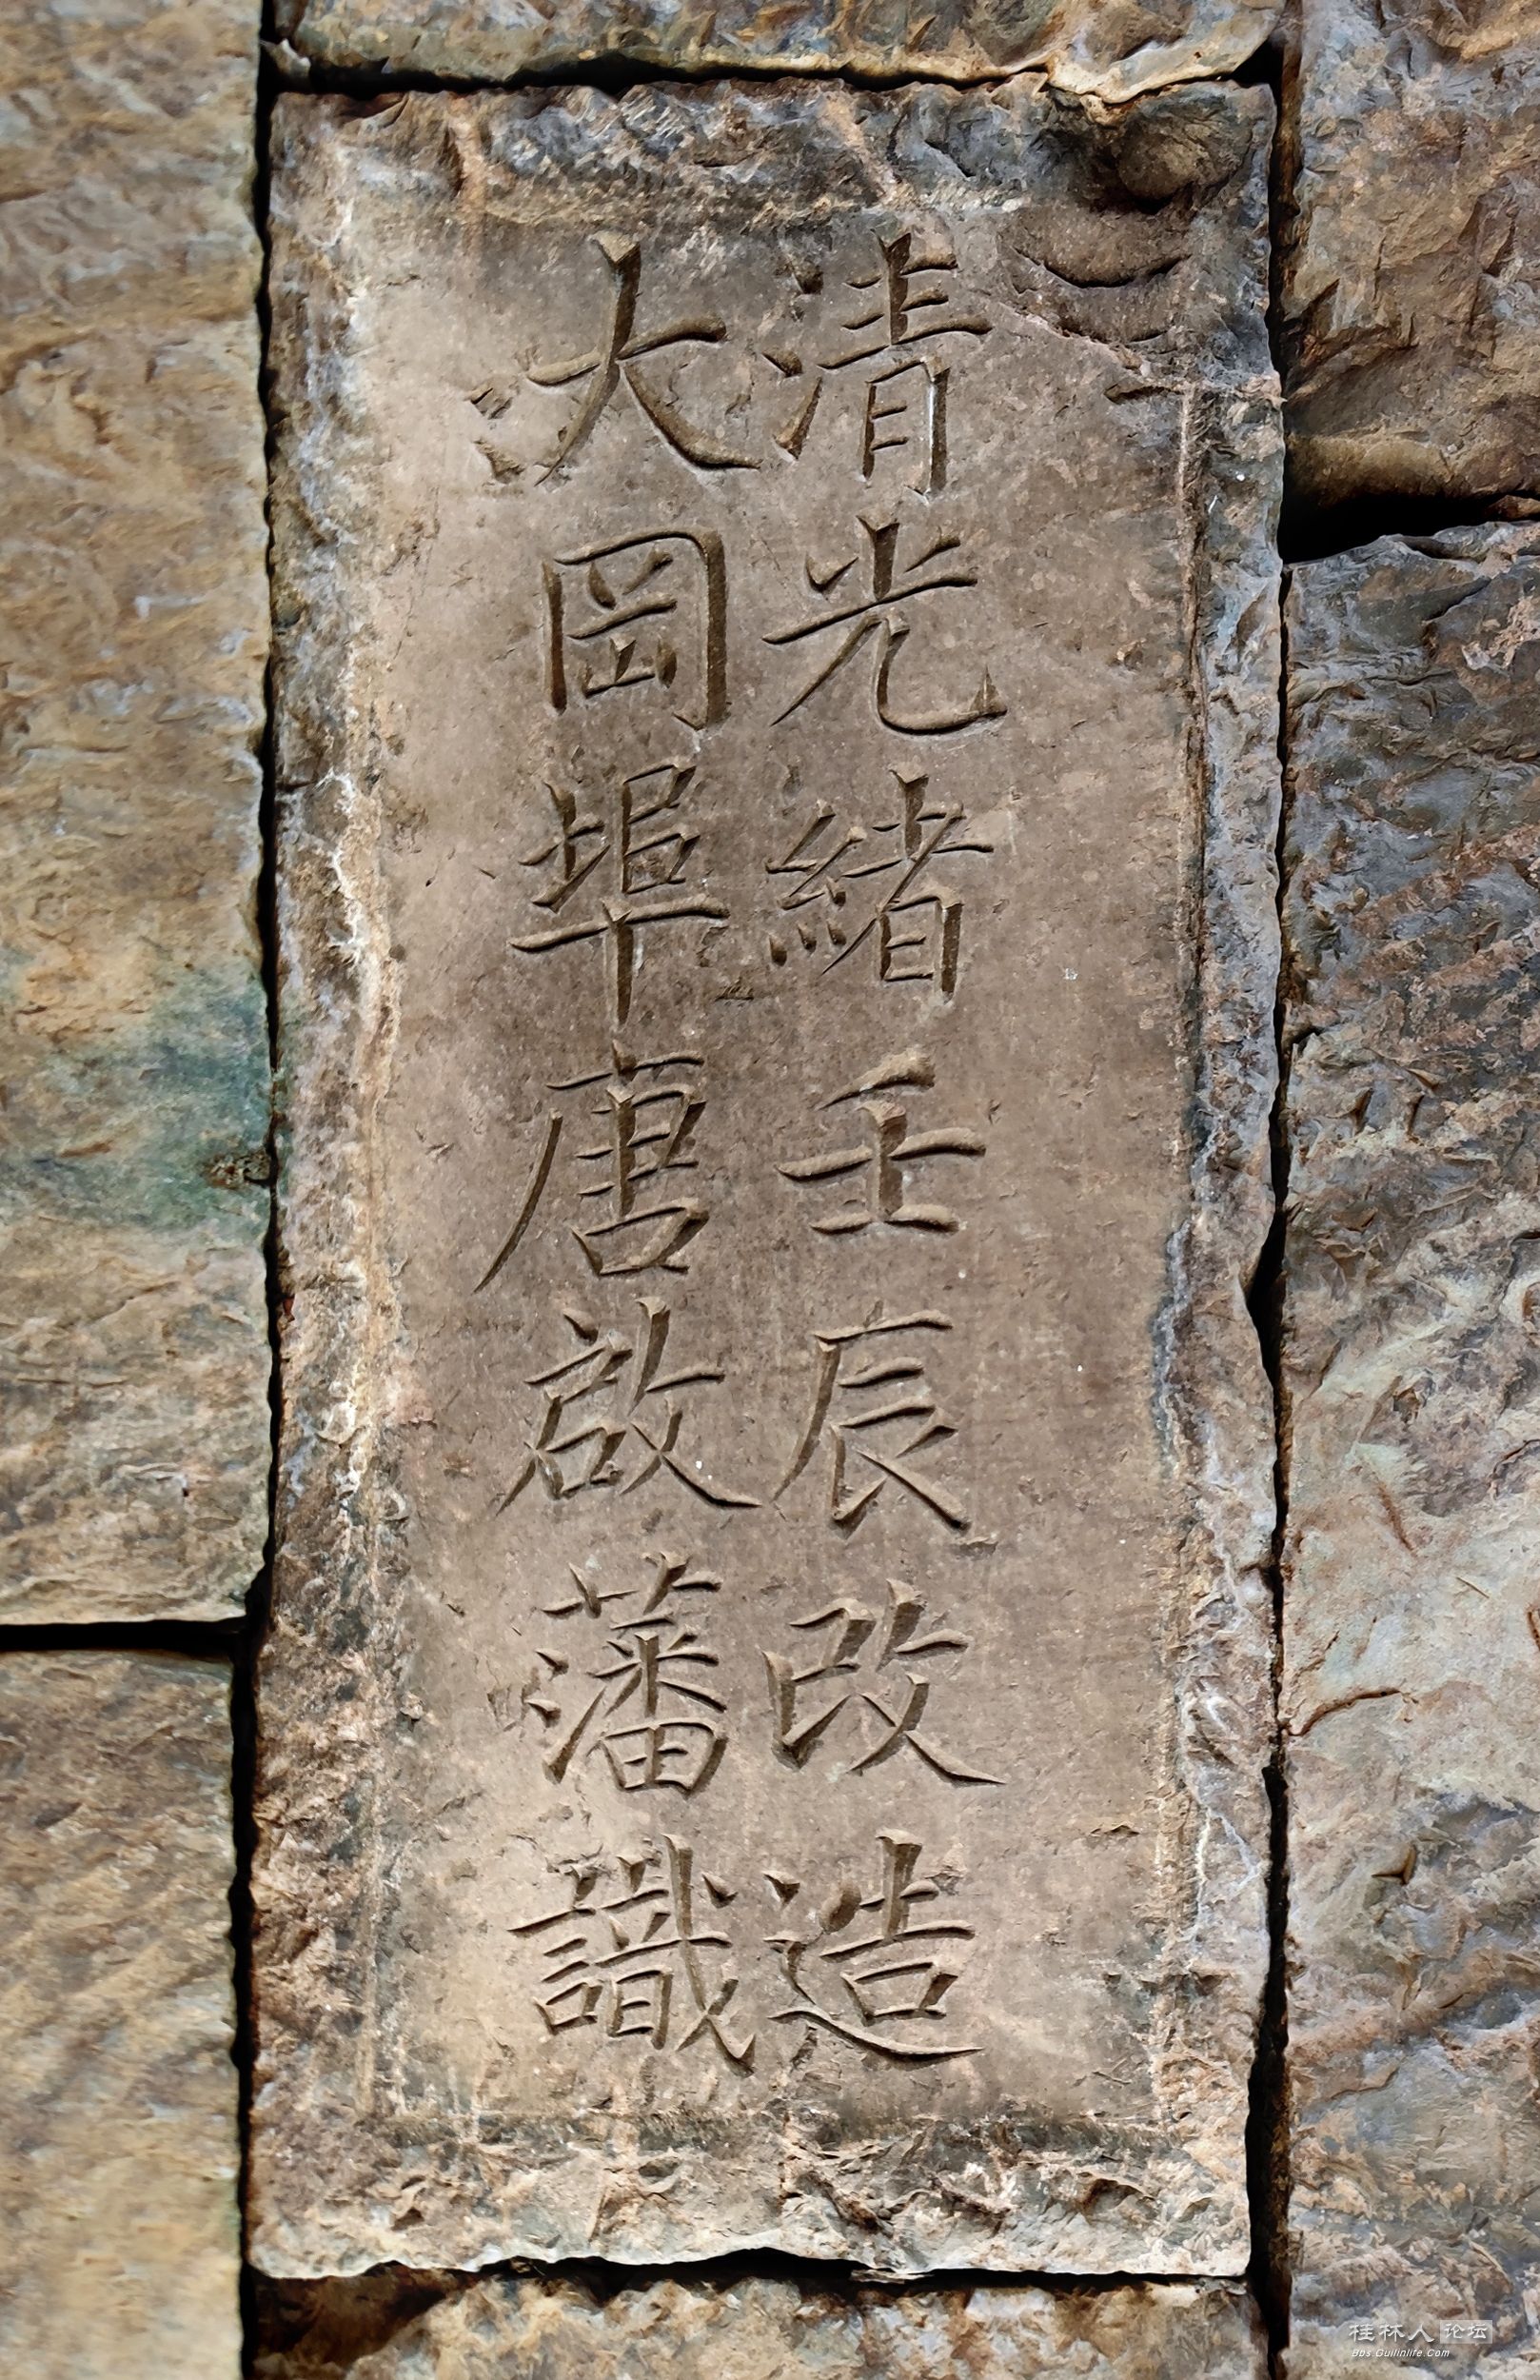 清光緒壬辰改造
大岡埠唐啟藩識
桂林人论坛
Bbs.Guilinlife.Com